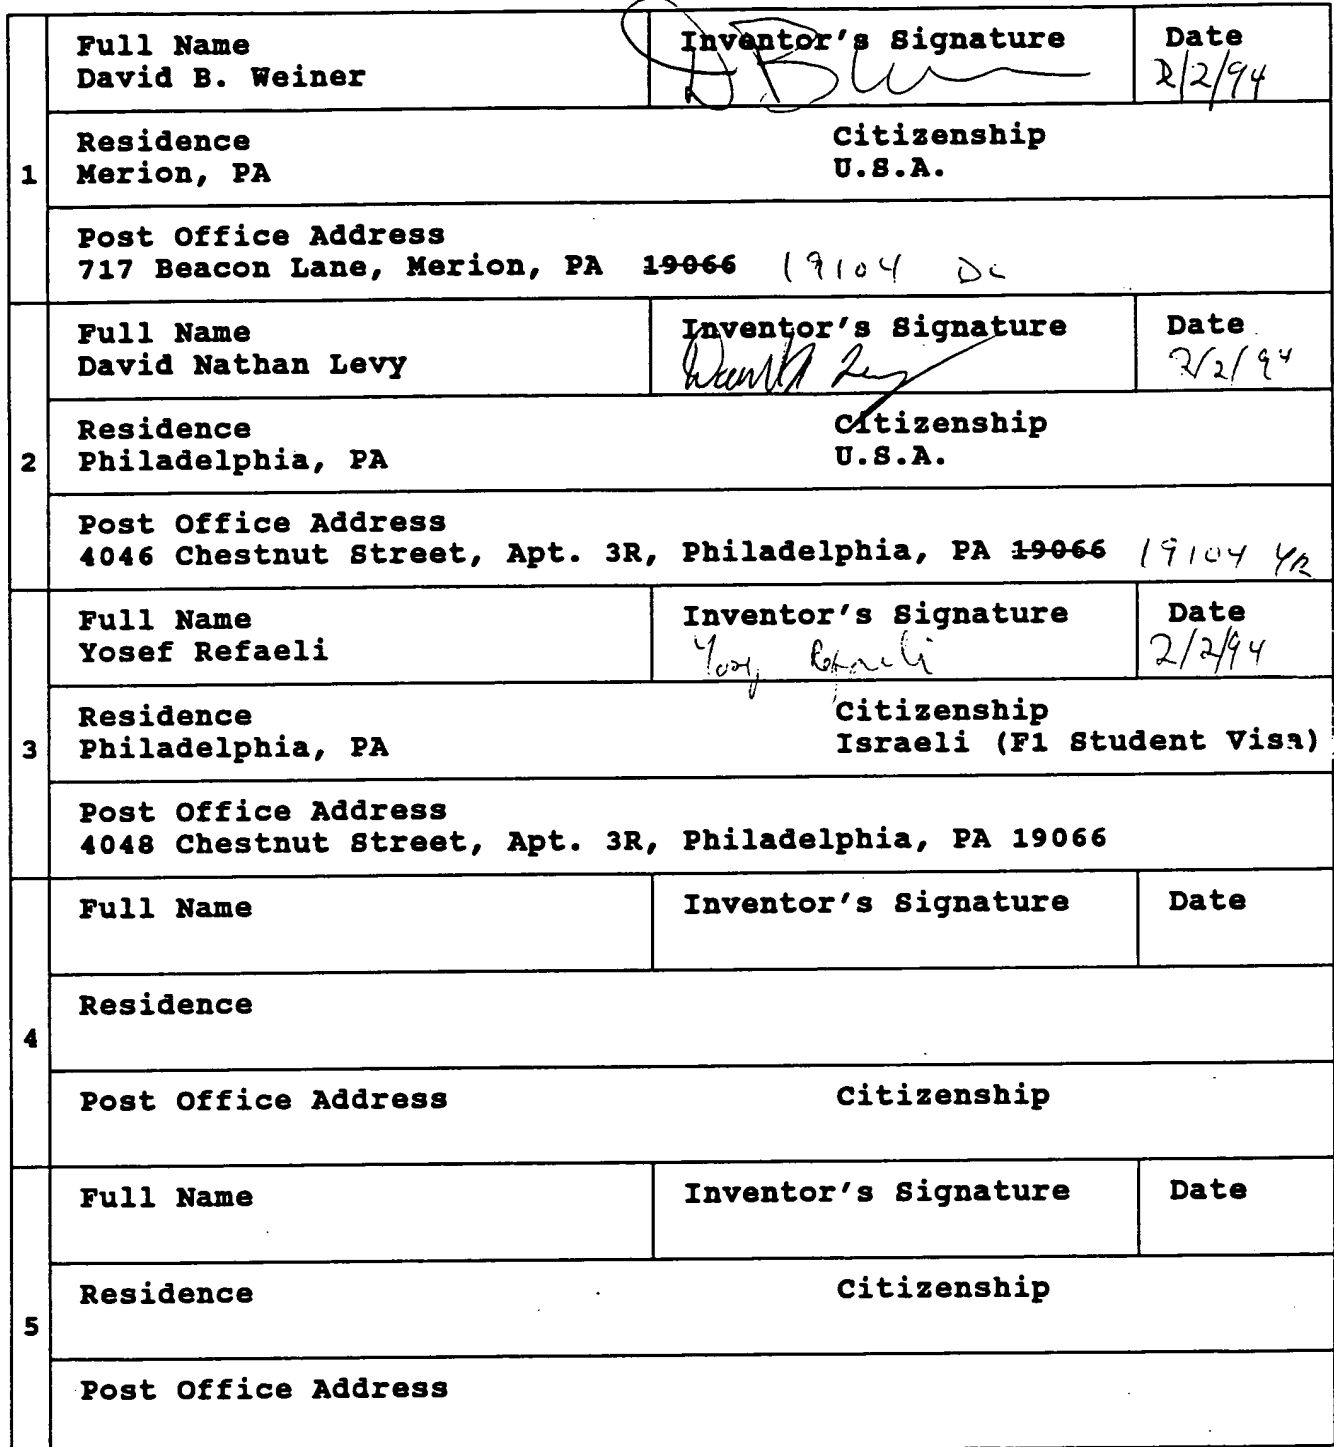 Full Name
David B. Weiner
Inventor's Signature
Date
2/2/94
1
Residence
Merion, PA
Citizenship
U.S.A.
Post Office Address
717 Beacon Lane, Merion, PA 19066 19104
Full Name
David Nathan Levy
Inventor's Signature
Date
2/2/94
2
Residence
Philadelphia, PA
Citizenship
U.S.A.
Post Office Address
4046 Chestnut Street, Apt. 3R, Philadelphia, PA 19066 19104 YR
Full Name
Yosef Refaeli
Inventor's Signature
Date
2/2/94
3
Residence
Philadelphia, PA
Citizenship
Israeli (F1 Student Visa)
Post Office Address
4048 Chestnut Street, Apt. 3R, Philadelphia, PA 19066
Full Name
Inventor's Signature
Date
4
Residence
Post Office Address
Citizenship
Full Name
Inventor's Signature
Date
5
Residence
Citizenship
Post Office Address